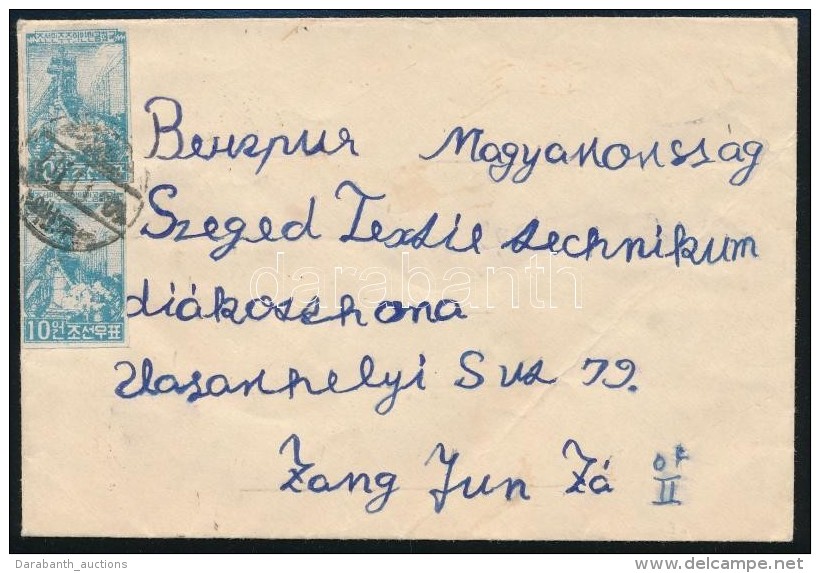 조선민주주의인민공화국
10원 조선우표
Венгрия Magyanonszág
Szeged Textil technikum
diákoszhona
Vasanhelyi Suz 79.
Zang Jun Zá
II
darabanth
Darabanth_auctions
delcampe.net